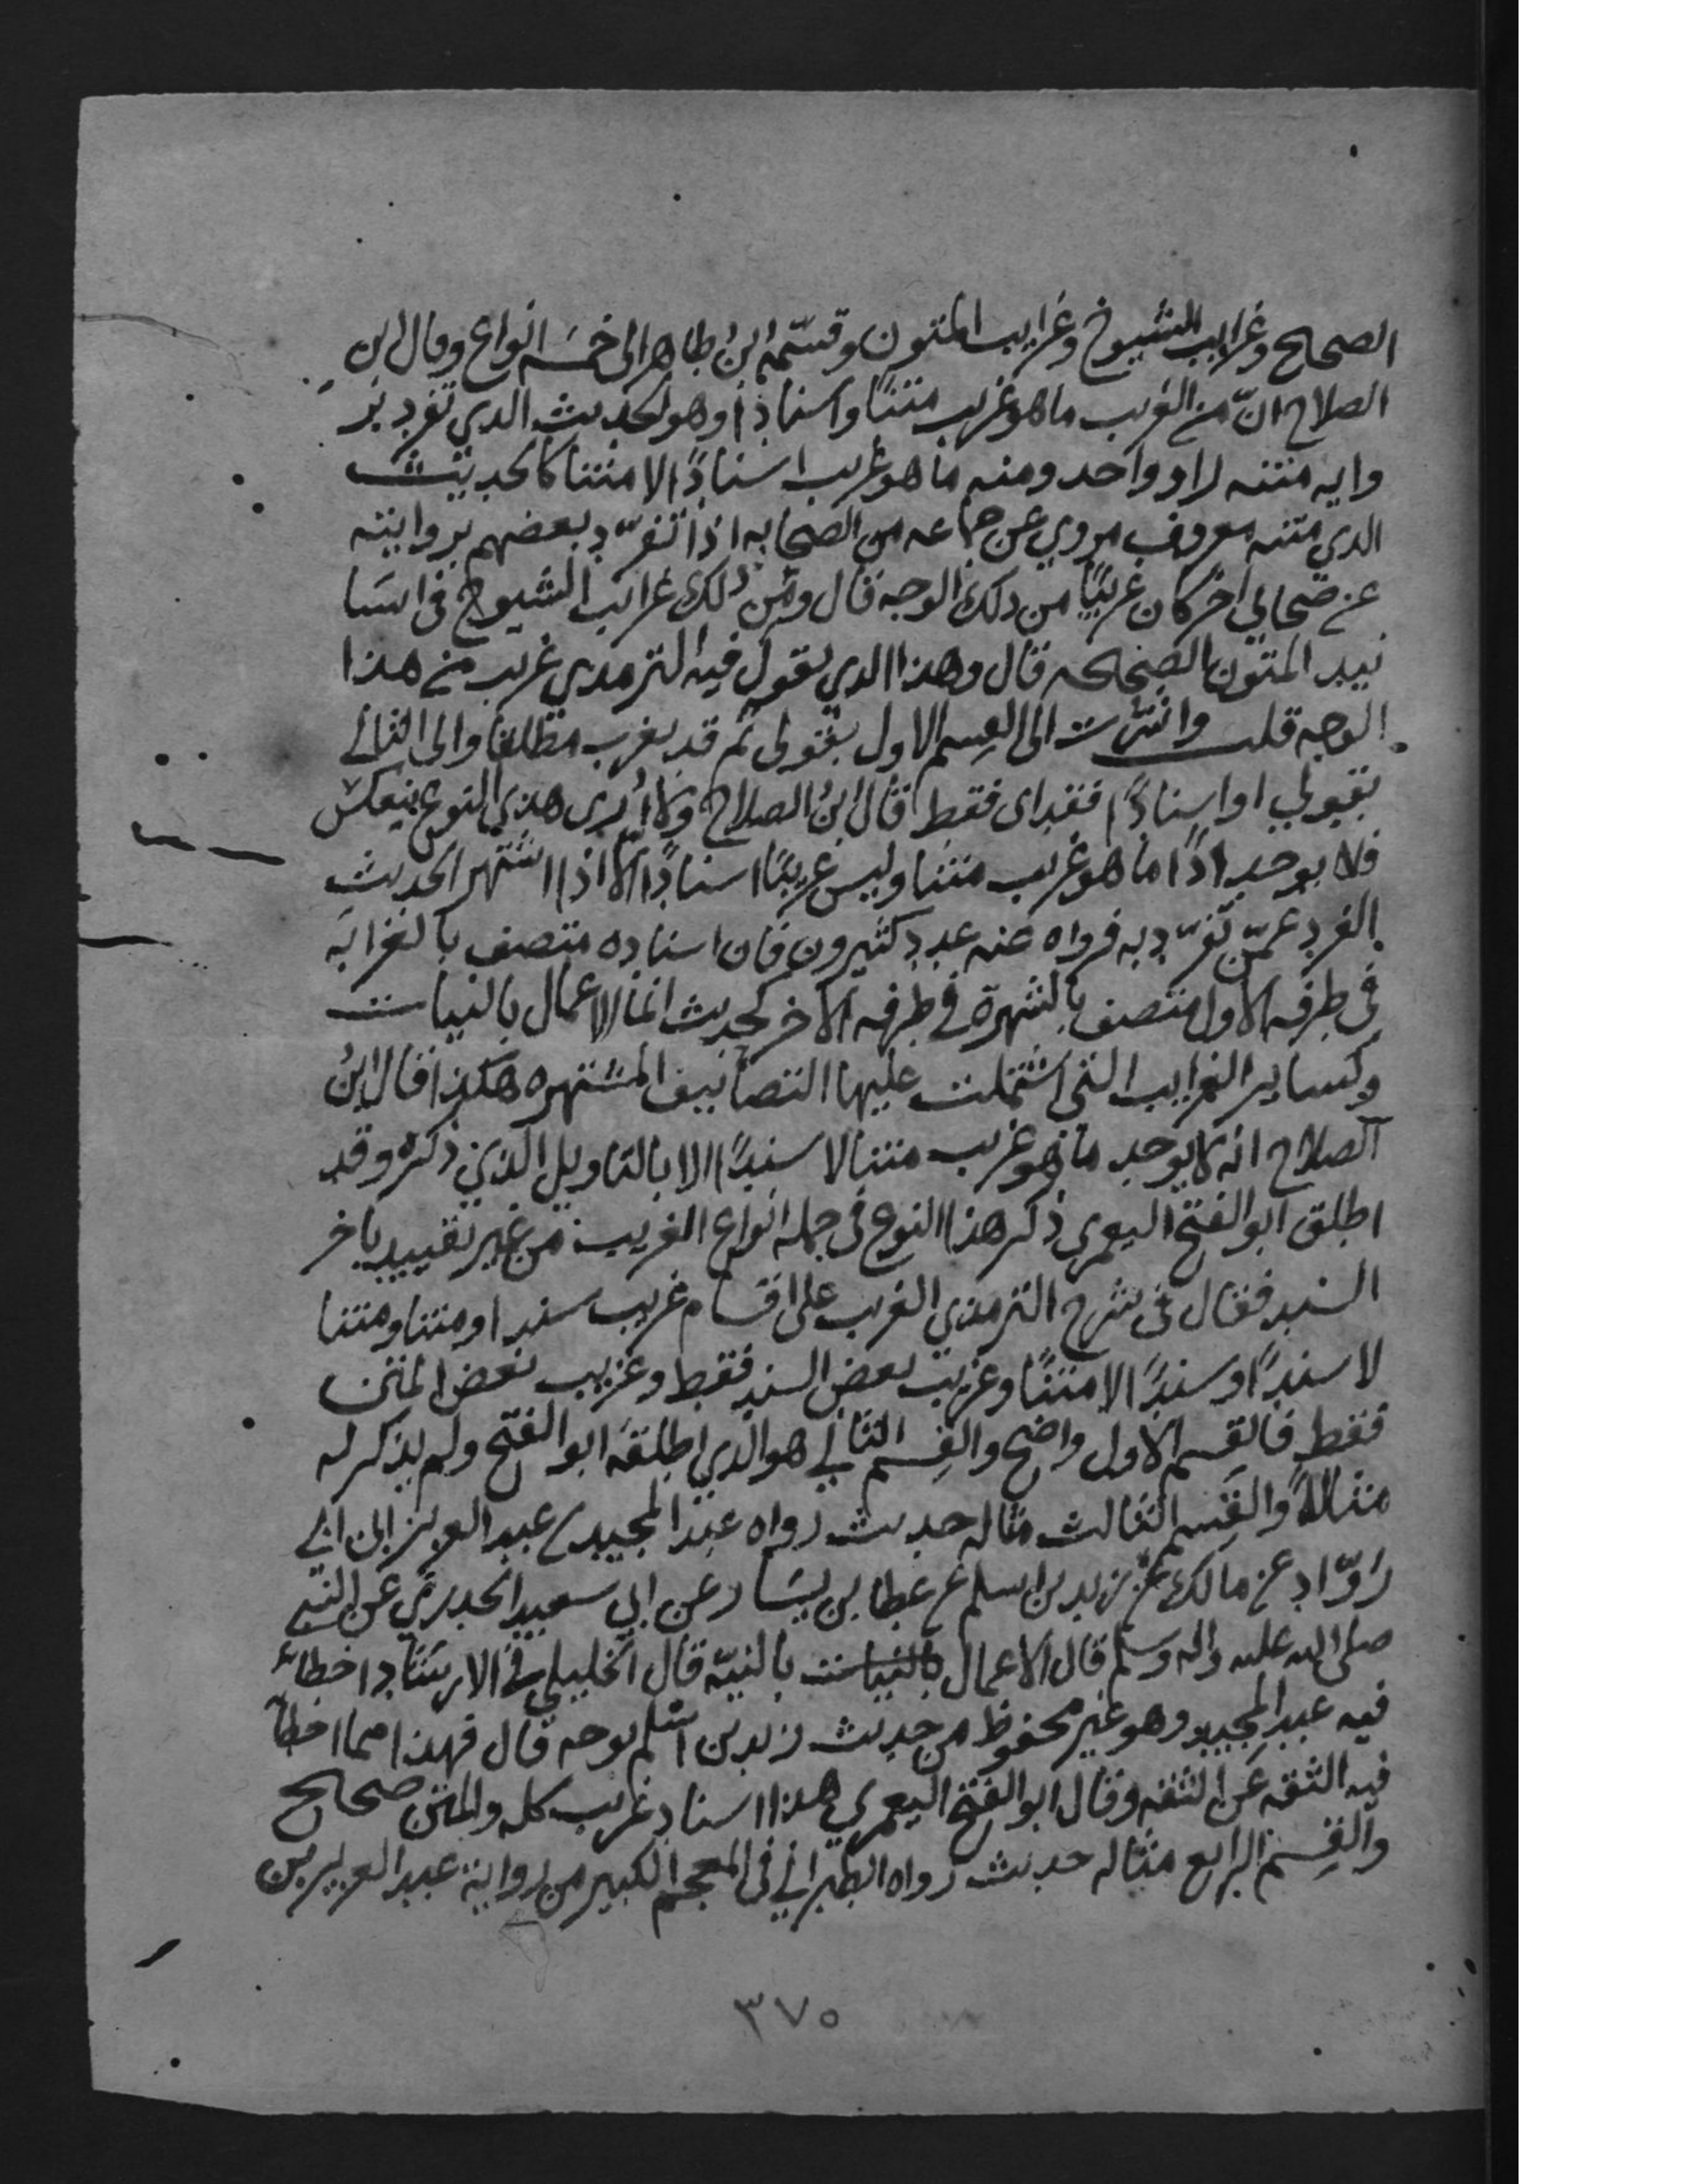 الصحاح وغرايب الشيوخ وغرايب المتون وقسّمهُ ابنُ طاهر الى خمسَه انواع وقال ابن
الصلاح انّ من الغريب ما هو غريب متنًا واسنادًا وهو الحديث الذي تفرد بر
وايه متنه راو واحد ومنه ما هو غريب اسنادًا لا متنا كالحديث
الذي متنه معروف مروي عن جماعه من الصحابه اذا تفرّد بعضهم بروايته
عن صحابي اخر كان غريبًا من ذلك الوجه قال ومن ذلك غرايب الشيوخ فى اسَا
نيد المتون الصحيحه قال وهذا الذي يقول فيه الترمذي غريب من هذا
الوجه قلت واشرت الى القسم الاول بقولى ثم قد يغرب مطلقا والى الثانى
بقولي او اسنادًا فقد اى فقط قال ابنُ الصلاح ولا أرى هذا النوع ينعكس
فلا يوجد اذًا ما هو غريب متنا وليس غريبًا اسنادًا الا اذا اشتهر الحديث
الفرد عمّن تفرّد به فرواه عنه عدد كثيرون فان اسناده متصف بالغرابَه
فى طرفه الاول متصف بالشهرة في طرفه الاخر كحديث انما الاعمال بالنيات
وكساير الغرايب التى اشتملت عليها التصانيف المشتهره هكذا قال ابنُ
الصلاح انه لا يوجد ما هو غريب متنا لا سندًا الا بالتاويل الذي ذكره وقد
اطلق ابو الفتح اليعمري ذكر هذا النوع فى جمله انواع الغريب من غير تقييد باخر
السند فقال فى شرح الترمذي الغريب على اقسام غريب سندا ومتنا ومتنا
لا سندًا وسندًا لا متنًا وغريب بعض السند فقط وغريب بعض المتن
فقط فالقسم الاول واضح والقسم الثاني هو الذي اطلقه ابو الفتح ولم يذكر له
مثالًا والقسم الثالث مثاله حديث رواه عبد المجيد بن عبد العزيز ابن ابى
رَوّاد عن مالك عن زيد بن اسلم عن عطا بن يسَار عن ابي سعيد الخدري عن النبي
صلى الله عليه واله وسلم قال الاعمال بالنيات بالنيّه قال الخليلي في الارشاد اخطأ
فيه عبد المجيد وهو غير محفوظ من حديث زيد بن اسلم بوجه قال فهذا مما اخطأ
فيه الثقه عن الثقه وقال ابو الفتح اليعمري هذا اسناد غريب كله والمتن صحيح
والقسم الرابع مثاله حديث رواه الطبراني فى المعجم الكبير من رواية عبد العزيز بن
٣٧٥